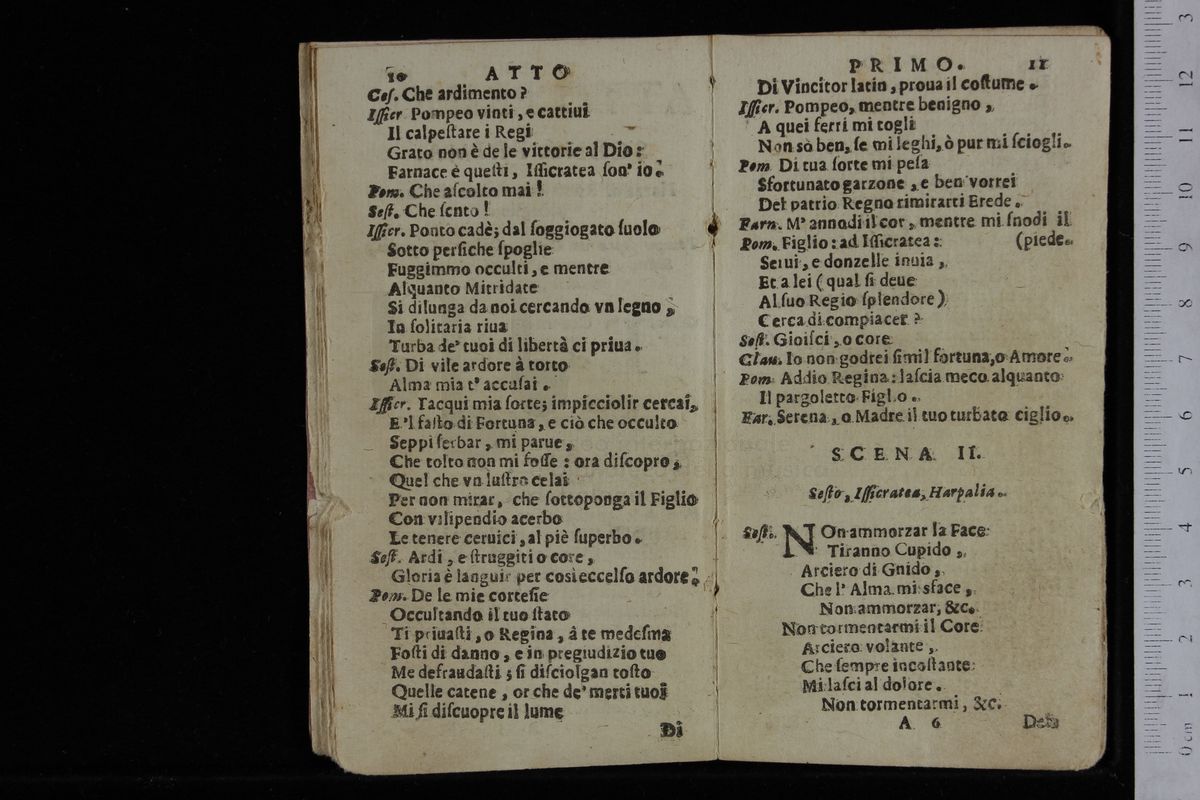 10 ATTO
Ceſ. Che ardimento ?
Iſſicr Pompeo vinti , e cattiui
Il calpeſtare i Regi
Grato non è de le vittorie al Dio :
Farnace è queſti , Iſſicratea ſon' io .
Pom. Che aſcolto mai !
Seſt. Che ſento !
Iſſicr. Ponto cadè; dal ſoggiogato ſuolo
Sotto perſiche ſpoglie
Fuggimmo occulti , e mentre
Alquanto Mitridate
Si dilunga da noi cercando vn legno ,
In ſolitaria riua
Turba de' tuoi di libertà ci priua .
Seſt. Di vile ardore à torto
Alma mia t' accuſai .
Iſſicr. Tacqui mia ſorte; impicciolir cercai,
E 'l faſto di Fortuna , e ciò che occulto
Seppi ſerbar , mi parue ,
Che tolto non mi foſſe : ora diſcopro ,
Quel che vn luſtro celai
Per non mirar , che ſottoponga il Figlio
Con vilipendio acerbo
Le tenere ceruici , al piè ſuperbo .
Seſt. Ardi , e ſtruggiti o core ,
Gloria è languir per così eccelſo ardore .
Pom. De le mie corteſie
Occultando il tuo ſtato
Ti priuaſti , o Regina , à te medeſma
Foſti di danno , e in pregiudizio tuo
Me defraudaſti ; ſi diſciolgan toſto
Quelle catene , or che de' merti tuoi
Mi ſi diſcuopre il lume
Di
PRIMO. 11
Di Vincitor latin , proua il coſtume .
Iſſicr. Pompeo, mentre benigno ,
A quei ferri mi togli
Non sò ben, ſe mi leghi, ò pur mi ſciogli.
Pom. Di tua ſorte mi peſa
Sfortunato garzone , e ben vorrei
Del patrio Regno rimirarti Erede .
Farn. M' annodi il cor , mentre mi ſnodi il
Pom. Figlio : ad Iſſicratea : (piede.
Serui , e donzelle inuia ,
Et a lei ( qual ſi deue
Al ſuo Regio ſplendore )
Cerca di compiacer ?
Seſt. Gioiſci , o core
Clau. Io non godrei ſimil fortuna, o Amore .
Pom Addio Regina : laſcia meco alquanto
Il pargoletto Figlio .
Far. Serena , o Madre il tuo turbato ciglio .
SCENA II.
Seſto, Iſſicratea, Harpalia .
Seſt. NOn ammorzar la Face
Tiranno Cupido ,
Arciero di Gnido ,
Che l' Alma mi sface ,
Non ammorzar, &c.
Non tormentarmi il Core
Arciero volante ,
Che ſempre incoſtante
Mi laſci al dolore .
Non tormentarmi , &c.
A 6